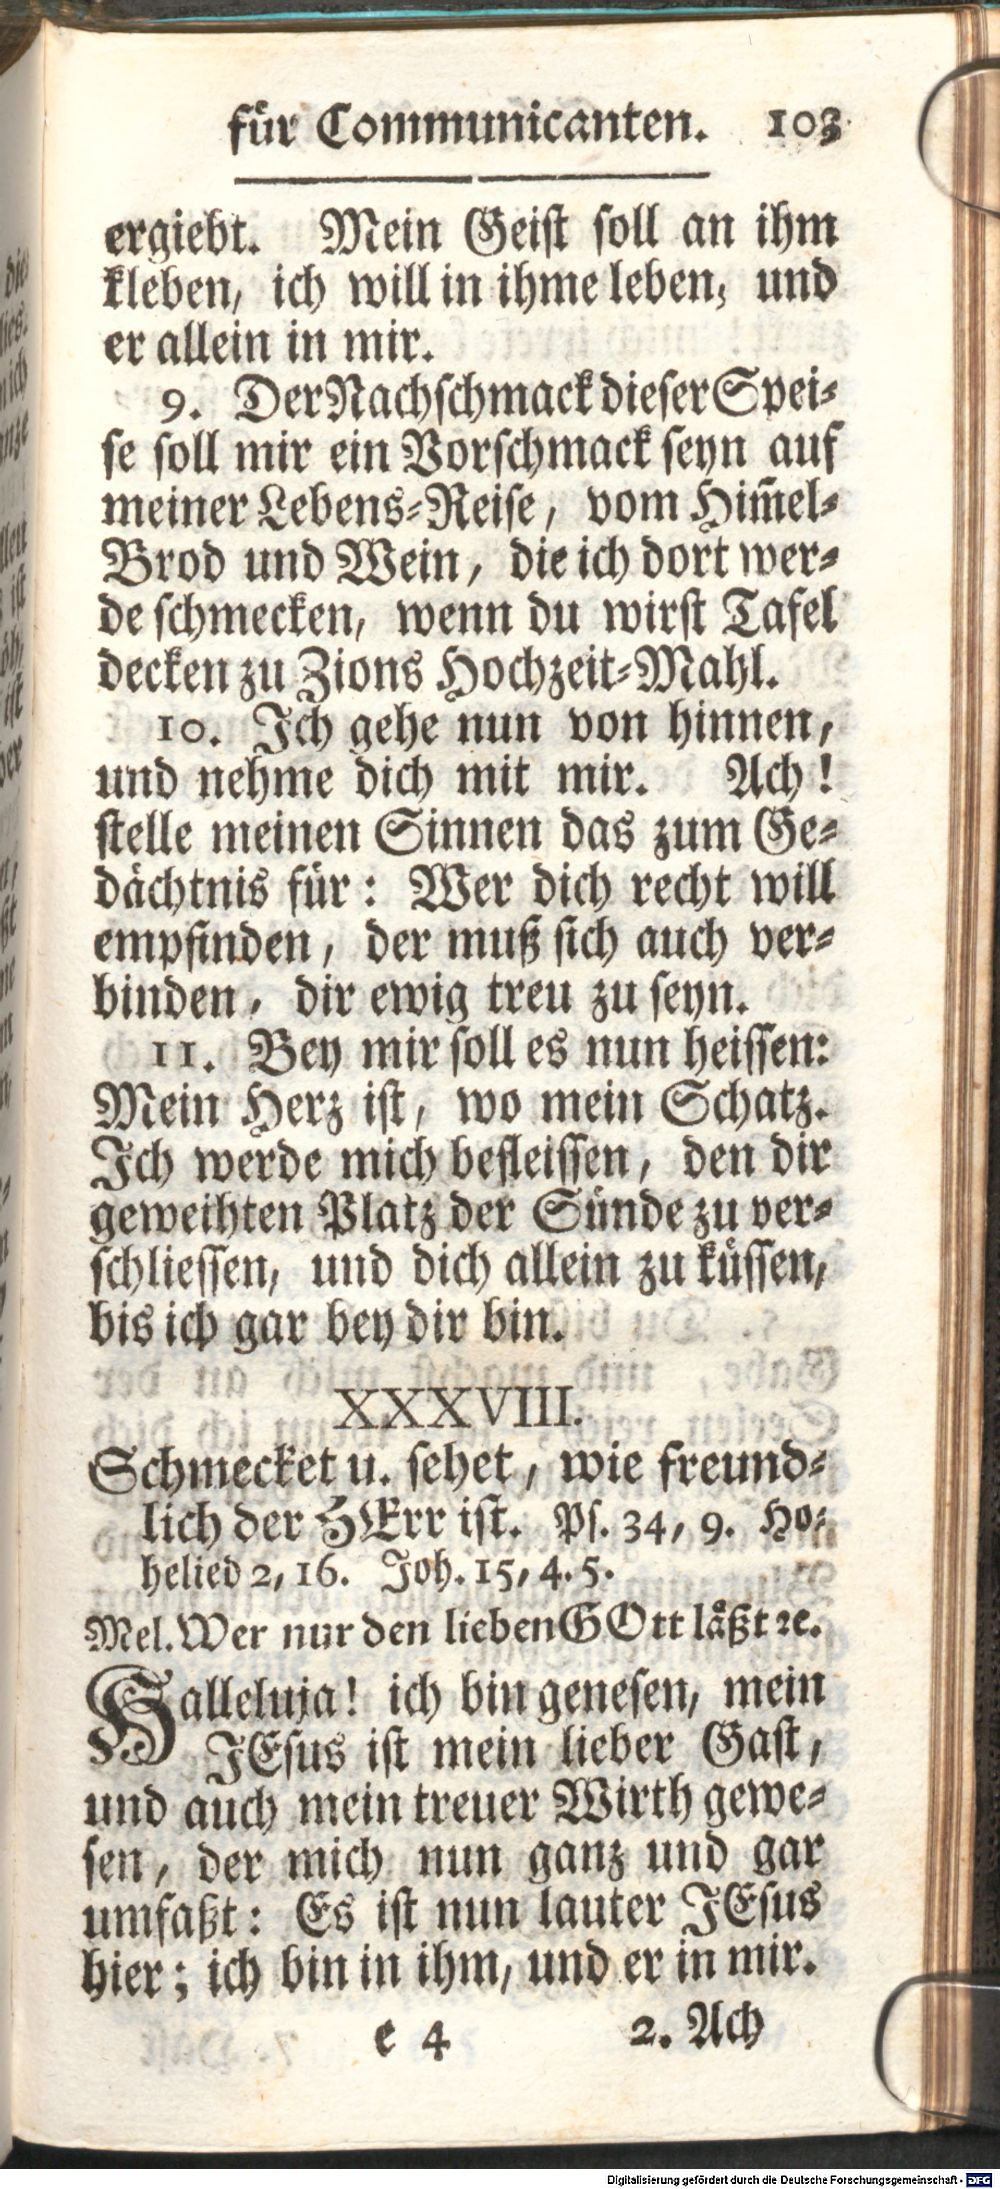 für Communicanten. 103
ergiebt. Mein Geist soll an ihm
kleben, ich will in ihme leben, und
er allein in mir.
9. Der Nachschmack dieser Spei-
se soll mir ein Vorschmack seyn auf
meiner Lebens-Reise, vom Him̃el-
Brod und Wein, die ich dort wer-
de schmecken, wenn du wirst Tafel
decken zu Zions Hochzeit-Mahl.
10. Ich gehe nun von hinnen,
und nehme dich mit mir. Ach!
stelle meinen Sinnen das zum Ge-
dächtnis für: Wer dich recht will
empfinden, der muß sich auch ver-
binden, dir ewig treu zu seyn.
11. Bey mir soll es nun heissen:
Mein Herz ist, wo mein Schatz.
Ich werde mich befleissen, den dir
geweihten Platz der Sünde zu ver-
schliessen, und dich allein zu küssen,
bis ich gar bey dir bin.
XXXVIII.
Schmecket u. sehet, wie freund-
lich der HErr ist. Ps. 34, 9. Ho-
helied 2, 16. Joh. 15, 4. 5.
Mel. Wer nur den lieben GOtt läßt ꝛc.
Halleluja! ich bin genesen, mein
JEsus ist mein lieber Gast,
und auch mein treuer Wirth gewe-
sen, der mich nun ganz und gar
umfaßt: Es ist nun lauter JEsus
hier; ich bin in ihm, und er in mir.
e 4 2. Ach
Digitalisierung gefördert durch die Deutsche Forschungsgemeinschaft - DFG